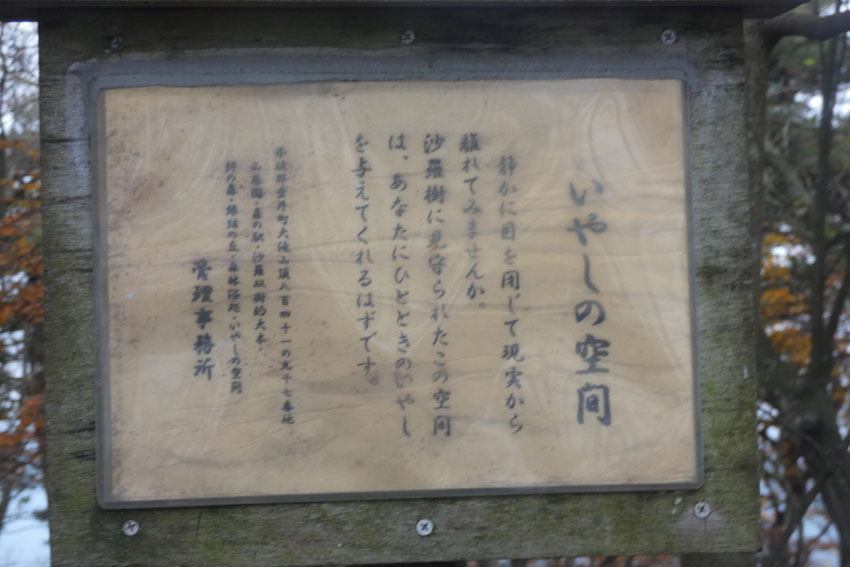 いやしの空間
静かに目を閉じて現実から
離れてみませんか。
沙羅樹に見守られたこの空間
は、あなたにひとときのいやし
を与えてくれるはずです。
不破郡垂井町大滝山頂八百四十一の九十七番地
山菜園・森の駅・沙羅双樹的大本・
絆の森・縁結の丘・森林浴処・いやしの空間
管理事務所